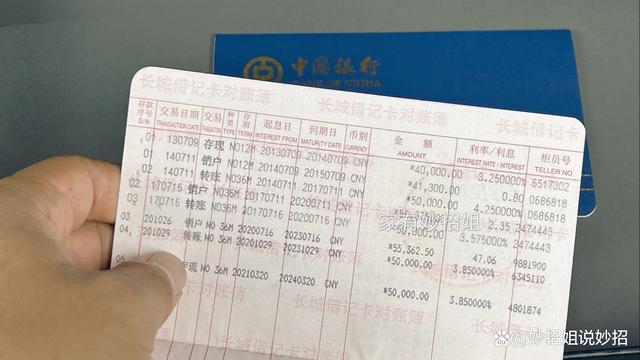 中国银行
BANK OF CHINA
长城借记卡对账簿 长城借记卡对账簿
长城借记卡对账簿
存款序号 交易日期 交易 种类 存期 起息日 到期日 币别 金 额 利率/利息 柜员号
S/N TRANSACTION DATE TYPE TERM INTEREST FROM MATURITY DATE CURRENCY AMOUNT INTEREST RATE / INTEREST TELLER NO.
01 130709 存现 NO12M 20130709 20140709 CNY *40,000.00 3.250000% 6517302
01 140711 销户 NO12M 20140709 20150709 CNY *41,300.00 0.80 0686818
02 140711 转账 NO36M 20140711 20170711 CNY 4.250000% 0686818
02 170716 销户 NO36M 2.35 2474443
03 170716 转账 NO36M 20170716 20200716 CNY 3.575000% 2474443
03 201026 销户 NO 36M 20200716 20230716 CNY *55,362.50 47.06 9881900
04 201029 转账 NO 36M 20201029 20231029 CNY *50,000.00 3.850000% 6345110
05 存现 NO 36M 20210320 20240320 CNY *50,000.00 3.850000% 4801874
家有妙招姐
长城借记卡对账簿
头条 @妙招姐说妙招